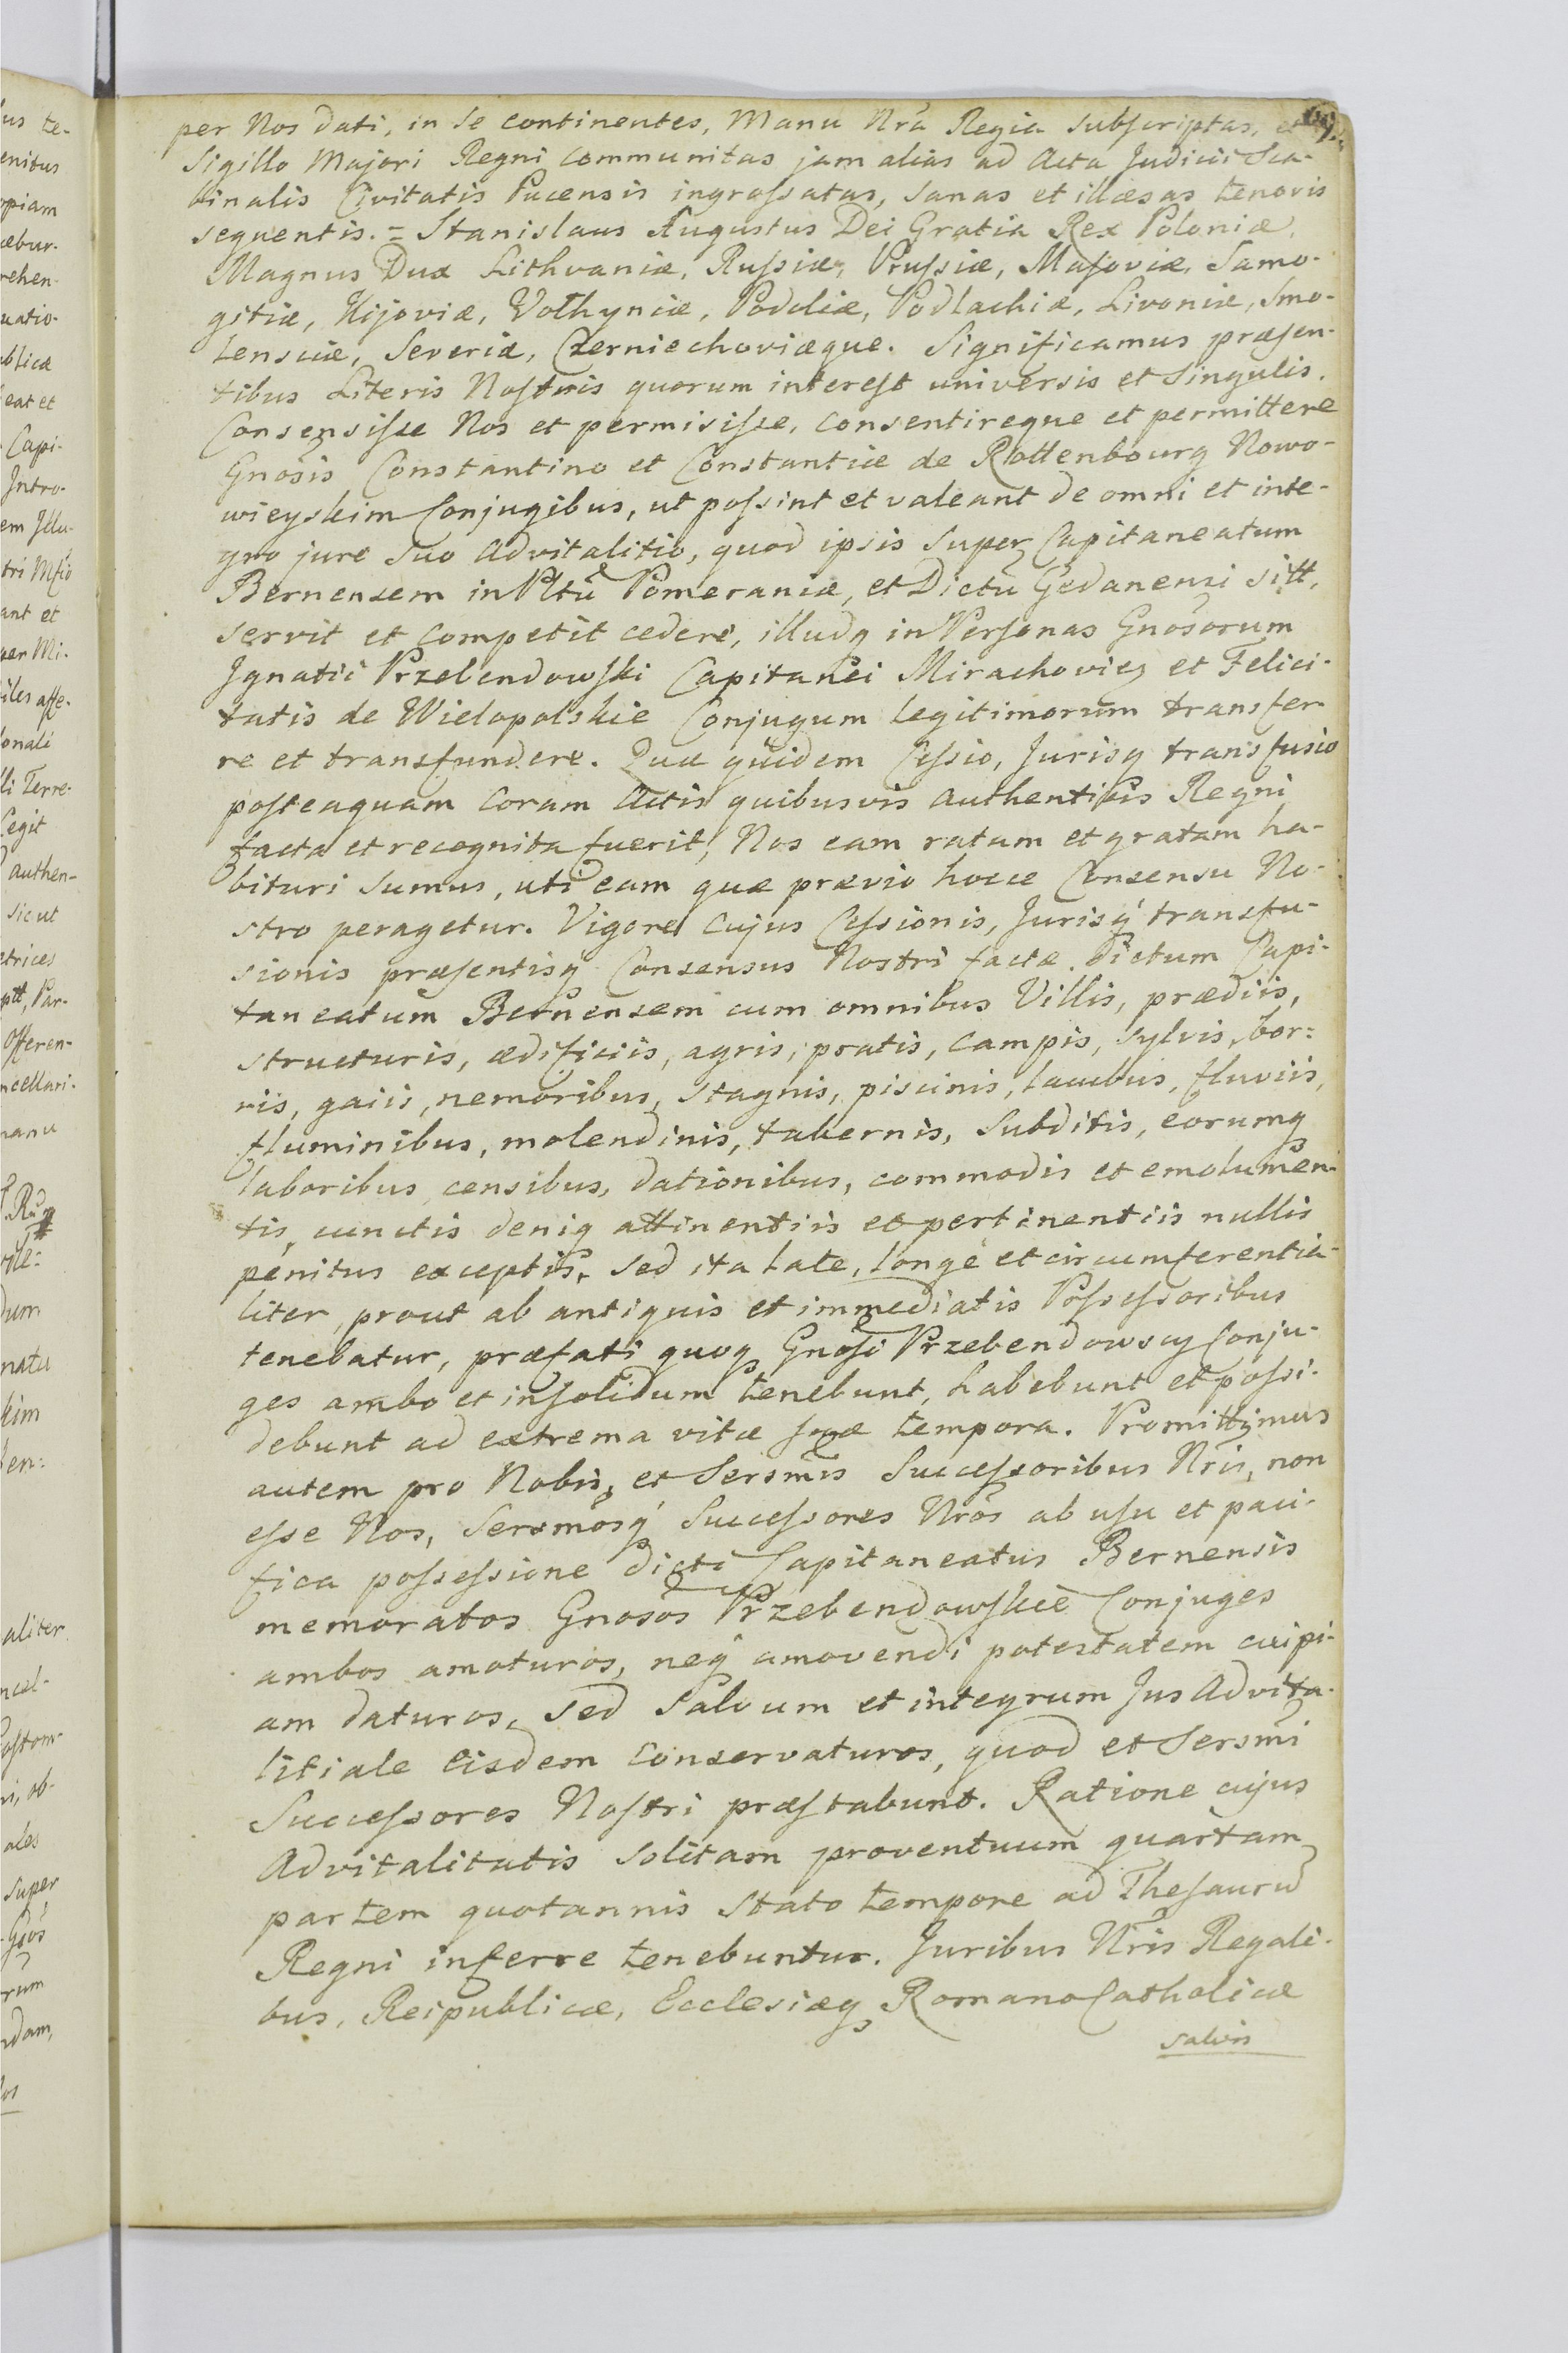 per Nos dati, in se continentes, Manu Nrã Regia subscriptas, et
Sigillo Majori Regni communitas jam alias ad Acta Judicii Sca-
binalis Civitatis Pucensis ingrossatas, sanas et illæsas tenoris
sequentis. = Stanislaus Augustus Dei Gratia Rex Poloniæ,
Magnus Dux Lithvaniæ, Russiæ, Prussiæ, Masoviæ, Samo-
gitiæ, Kijoviæ, Volhyniæ, Podoliæ, Podlachiæ, Livoniæ, Smo-
lensciæ, Severiæ, Czerniechoviæque. Significamus præsen-
tibus Literis Nostris quorum interest universis et singulis.
Consensisse Nos et permisisse, consentireque et permittere
Gnosis Constantino et Constantiæ de Rottenbourg Nowo-
wieyskim Conjugibus, ut possint et valeant de omni et inte-
gro jure suo Advitalitio, quod ipsis super Capitaneatum
Bernensem in Pltũ Pomeraniæ, et Dictũ Gedanensi sitt,
servit et competit cedere, illudq in Personas Gnosorum
Ignatii Przebendowski Capitanei Mirachovien et Felici-
tatis de Wielopolskie Conjugum legitimorum transfer-
re et transfundere. Quæ quidem Cessio, Jurisq transfusio
posteaquam coram Actis quibusvis authenticis Regni
facta et recognita fuerit, Nos eam ratam et gratam ha-
bituri sumus, uti eam quæ prævio hocce Consensu No-
stro peragetur. Vigore cujus Cessionis, Jurisq transfu-
sionis præsentisq Consensus Nostri factæ. Dictum Capi-
taneatum Bernensem cum omnibus Villis, prædiis,
structuris, ædificiis, agris, pratis, campis, sylvis, bor-
ris, gaiis, nemoribus, stagnis, piscinis, lacubus, fluviis,
fluminibus, molendinis, tabernis, subditis, eorumq
laboribus, censibus, dationibus, commodis et emolumen-
tis, cunctis deniq attinentiis et pertinentiis nullis
penitus exceptis, sed ita late, longe et circumferentia-
liter, prout ab antiquis et immediatis Possessoribus
tenebatur, præfati quoq Gnosi Przebendowscy Conju-
ges ambo et insolidum tenebunt, habebunt et possi-
debunt ad extrema vitæ suæ tempora. Promittimus
autem pro Nobis, et Sersmis Successoribus Nris, non
esse Nos, Sersmosq Successores Nrõs ab usu et paci-
fica possessione dicti Capitaneatus Bernensis
memoratos Gnosos Przebendowskie Conjuges
ambos amoturos, neq amovendi potestatem cuipi-
am daturos, sed salvum et integrum Jus Advita-
litiale eisdem conservaturos, quod et Sersmi
Successores Nostri præstabunt. Ratione cujus
Advitalitatis solitam proventuum quartam
partem quotannis stato tempore ad Thesaurũ
Regni inferre tenebuntur. Juribus Nris Regali-
bus, Reipublicæ, Ecclesiæq Romano Catholicæ
salvis